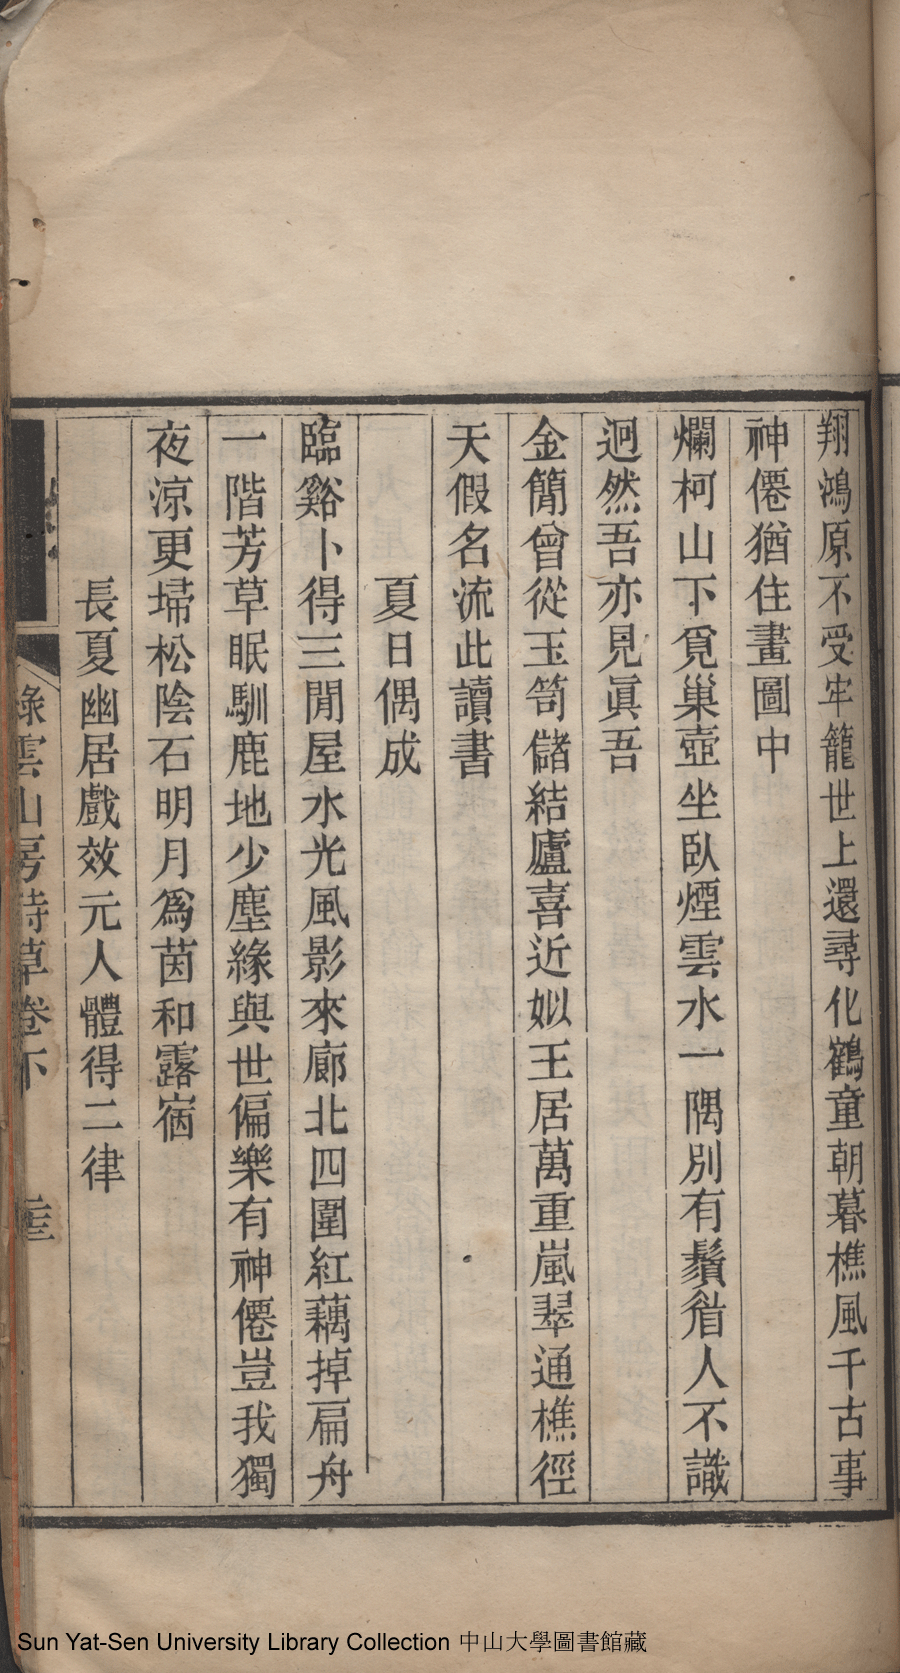 翔鴻原不受牢籠世上還尋化鶴童朝暮樵風千古事
神僊猶住畫圖中
爛柯山下覓巢壺坐臥煙雲水一隅別有鬚眉人不識
迥然吾亦見眞吾
金簡曾從玉笥儲結廬喜近姒王居萬重嵐翠通樵徑
天假名流此讀書
夏日偶成
臨谿卜得三閒屋水光風影來廊北四圍紅藕掉扁舟
一階芳草眠馴鹿地少塵緣與世偏樂有神僊豈我獨
夜涼更埽松陰石明月爲茵和露宿
長夏幽居戲效元人體得二律
綠雲山房詩草卷下
Sun Yat-Sen University Library Collection 中山大學圖書館藏